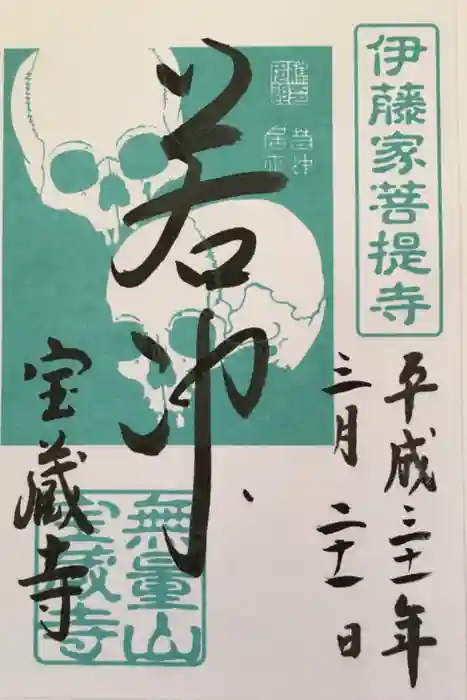 伊藤家菩提寺
平成三十一年
三月二十一日
若冲
宝蔵寺
無量山
宝蔵寺